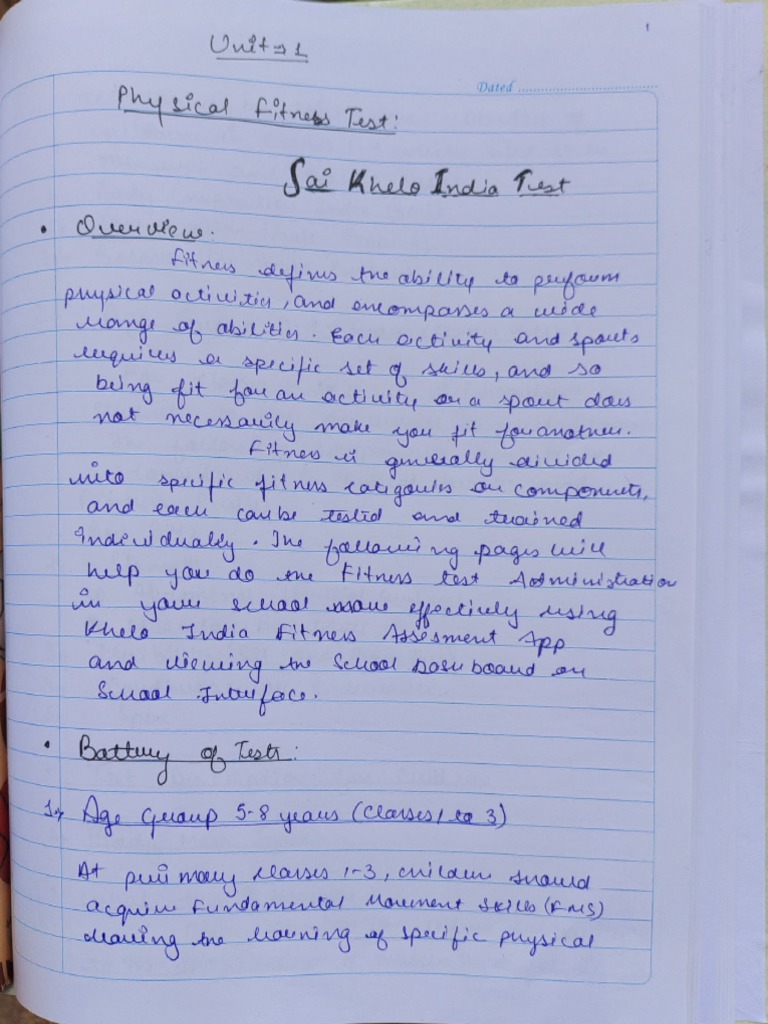 1
Unit⇒1
Dated
Physical Fitness Test:
Sai Khelo India Test
• Overview:
Fitness defines the ability to perform
physical activities, and encompasses a wide
range of abilities. Each activity and sports
requires a specific set of skills, and so
being fit for an activity or a sport does
not necessarily make you fit for another.
Fitness is generally divided
into specific fitness categories or components,
and each can be tested and trained
Individually. The following pages will
help you do the Fitness test Administration
in your school more effectively using
Khelo India Fitness Assesment App
and viewing the School Dashboard on
School Interface.
• Battery of Tests:
1→ Age Group 5-8 years (Classes 1 to 3)
At primary classes 1-3, children should
acquire Fundamental Movement Skills (FMS)
leaving the learning of specific physical